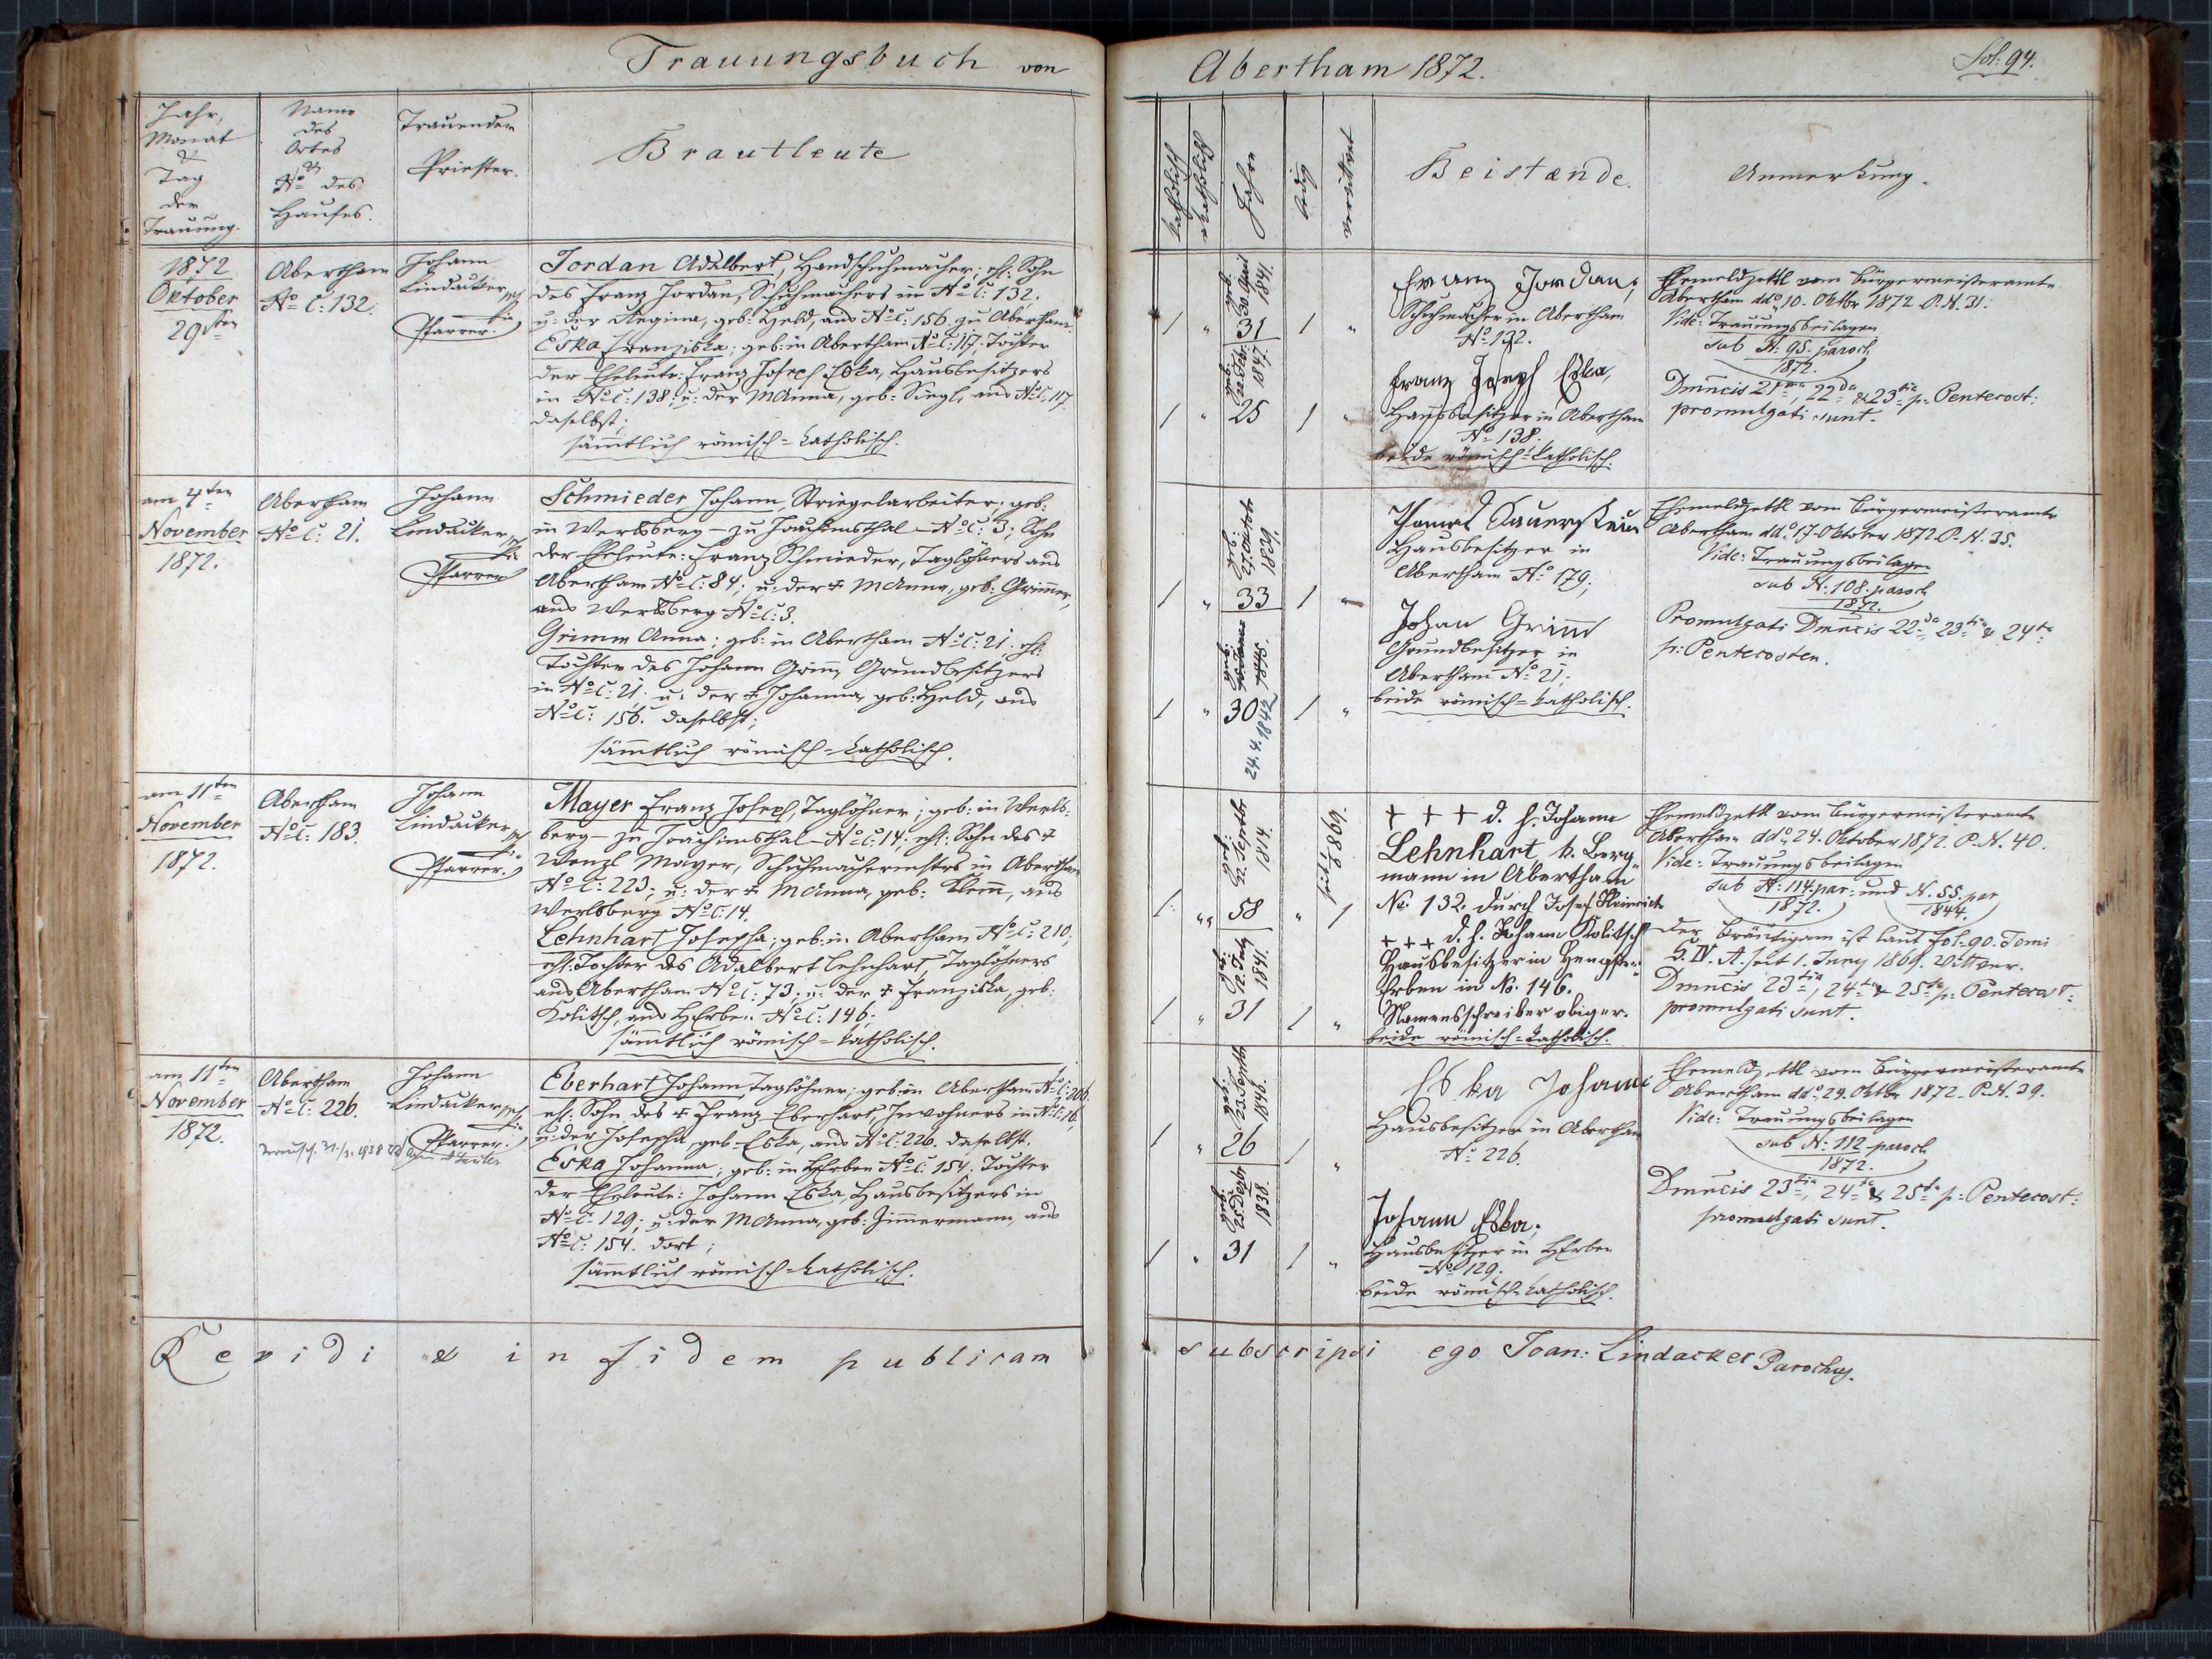 Trauungsbuch von
Abertham 1872.
Fol: 94.
Jahr,
Monat
&
Tag
der
Trauung.
Name
des
Ortes
&
No des
Hauses.
Trauender
Priester.
Brautleute
katholisch
akatholisch
Jahre
ledig
verwittwet
Beistænde.
Anmerkung.
1872
Oktober
29ten
Abertham
No C: 132.
Johann
Lindacker
Pfarrer.
Jordan Adalbert, Handschuhmacher; ehl: Sohn
des Franz Jordan, Schuhmachers in No C: 132.
u: der Regina, geb: Held, aus No C: 156. zu Abertham.
Eska Franziska; geb: in Abertham No C: 117; Tochter
der Eheleute: Franz Joseph Eska, Hausbesitzers
in No C: 138; u: der MAnna, geb: Siegl, aus No C: 117.
daselbst;
sämmtlich römisch=katholisch.
1 " 31 1 "
geb: 30. April 1841.
1 " 25 1 "
geb: 22. Feb: 1847.
Franz Jordan;
Schuhmacher in Abertham
No 132.
Franz Joseph Eska,
Hausbesitzer in Abertham
No 138.
beide römisch=katholisch.
Ehemeldzettl vom Bürgermeisteramte
Abertham ddo 10. Oktbr 1872 P. N. 31.
Vide: Trauungsbeilagen
sub N: 95. paroch
1872.
Dmncis 21ma, 22da & 23tia p: Pentecost:
promulgati sunt.
am 4ten
November
1872.
Abertham
No C: 21.
Johann
Lindacker
Pfarrer
Schmieder Johann, Striegelarbeiter; geb:
in Werlsberg - zu Joachimsthal - No C: 3; Sohn
der Eheleute: Franz Schmieder, Taglöhners aus
Abertham No C: 84; u: der + MAnna, geb: Grimm,
aus Werlsberg No C: 3.
Grimm Anna; geb: in Abertham No C: 21; ehl:
Tochter des Johann Grimm, Grundbesitzers
in No C: 21. u: der + Johanna, geb: Held, aus
No C: 156. daselbst;
sämmtlich römisch=katholisch.
1 " 33 1 "
geb: 27. Octobr 1839
1 " 30 1 "
geb:
24.4.1842
Thomas Sauerstein
Hausbesitzer in
Abertham No 179;
Johan Grimm
Grundbesitzer in
Abertham No 21;
beide römisch=katholisch.
Ehemeldzettl vom Bürgermeisteramte
Abertham ddo 17. Oktober 1872. P. N. 35.
Vide: Trauungsbeilagen
sub N: 108. paroch
1872.
Promulgati Dmncis 22da, 23tia & 24ta
p: Pentecosten.
am 11ten
November
1872.
Abertham
No C: 183.
Johann
Lindacker
Pfarrer.
Mayer Franz Joseph, Taglöhner; geb: in Werls-
berg - zu Joachimsthal - No C: 14; ehl: Sohn des +
Wenzl Mayer, Schuhmachermstrs in Abertham
No C: 223; u: der + MAnna, geb: Klemm, aus
Werlsberg No C: 14.
Lehnhart Josepha; geb: in Abertham No C: 210;
ehl: Tochter des Adalbert Lehnhart, Taglöhners
aus Abertham No C: 73; u: der + Franziska, geb:
Kolitsch, aus HErben No C: 146;
sämmtlich römisch=katholisch.
1 " 58 " 1
geb: 22. Septbr 1814.
seit 1869.
1 " 31 1 "
geb: 12. July 1841.
+ + + d. h. Johann
Lehnhart, k. Berg-
mann in Abertham
No. 132. durch Josef Heinrich
+++ d. h. Johann Kolitsch
Hausbesitzer in Hengster-
Erben in No. 146.
Namensschreiber obiger.
beide römisch=katholisch.
Ehemeldzettl vom Bürgermeisteramte
Abertham ddo 24. Oktober 1872. P. N. 40.
Vide: Trauungsbeilagen
sub N: 114. par: und N. 55. par
1872. 1844.
Der Bräutigam ist laut fol: 90. Tomi
IV. A. seit 1. Juny 1869. Wittwer.
Dmncis 23tia, 24ta & 25ta p: Pentecost:
promulgati sunt.
am 11ten
November
1872.
Abertham
No C: 226.
Johann
Lindacker
Pfarrer.
Eberhart Johann, Taglöhner; geb: in Abertham No C: 206.
ehl: Sohn des + Franz Eberhart, Inwohners in No C: 16,
u: der Josepha, geb: Eska, aus No C: 226. daselbst.
Eska Johanna; geb: in HErben No C: 154. Tochter
der Eheleute: Johann Eska, Hausbesitzers in
No C: 129; u: der MAnna, geb: Zimmermann, aus
No C: 154. dort;
sämmtlich römisch=katholisch.
1 " 26 1 "
geb: 23. Septbr 1846.
1 " 31 1 "
geb: 25. Dezbr 1838.
Eska Johann
Hausbesitzer in Abertham
No 226.
Johann Eska;
Hausbesitzer in HErben
No 129.
beide römisch=katholisch.
Ehemeldzettl vom Bürgermeisteramte
Abertham ddo 29. Oktbr 1872. P. N. 39.
Vide: Trauungsbeilagen
sub N: 112 paroch
1872.
Dmncis 23tia, 24ta & 25ta p: Pentecost:
promulgati sunt.
Revidi & in fidem publicam
subscripsi ego Joan: Lindacker Parochus.